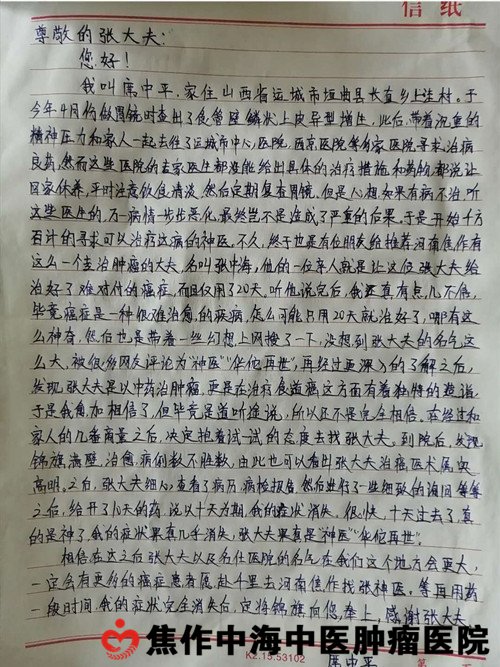 信纸
尊敬的张大夫:
您好!
我叫席中平,家住山西省运城市垣曲县长直乡上洼村。于
今年4月份做胃镜时查出了食管壁鳞状上皮异型增生,此后,带着沉重的
精神压力和家人一起去往了运城市中心医院,西京医院等多家医院寻求治病
良药,然而这些医院的专家医生都没能给出具体的治疗措施和药物,都说让
回家休养,平时注意饮食清淡,然后定期复查胃镜。但是心想,如果有病不治,听
这些医生的,万一病情一步步恶化,最终岂不是造成了严重的后果。于是开始千方
百计的寻求可以治疗这病的神医。不久,终于也是有位朋友给推荐河南焦作有
这么一个主治肿瘤的大夫,名叫张中海,他的一位亲人就是让这位张大夫给
治好了难对付的癌症,而且仅用了20天。听他说完后,我还真有点儿不信,
毕竟癌症是一种很难治愈的疾病,怎么可能只用20天就治好了,哪有这
么神奇,然后也是带着一丝幻想上网搜了一下,没想到张大夫的名气这
么大,被很多网友评论为“神医”“华佗再世”,再经过更深入的了解之后,
发现,张大夫是以中药治肿瘤,更是在治疗食道癌这方面有着独特的造诣,
于是我更加相信了,但毕竟是道听途说,所以还不是完全相信。在经过和
家人的几番商量之后,决定抱着试一试的态度去找张大夫。到院后,发现
锦旗满壁,治愈病例数不胜数,由此也可以看出张大夫治癌医术属实
高明。之后,张大夫细心查看了病历,病检报告,然后进行了一些细致的询问等等
之后,给开了小米的药,说以十天为期,我的症状消失,很快,十天过去了,真
的是神了,我的症状果真几乎消失,张大夫果真是“神医”“华佗再世”。
相信在此之后张大夫以及名仕医院的名气在我们这个地方会更大,
一定会有更多的癌症患者愿赴千里去河南焦作找张神医。等再用药
一段时间,我的症状完全消失后,定将锦旗向您奉上,感谢张大夫
焦作中海中医肿瘤医院
K2.15.53102
席中平
第 页